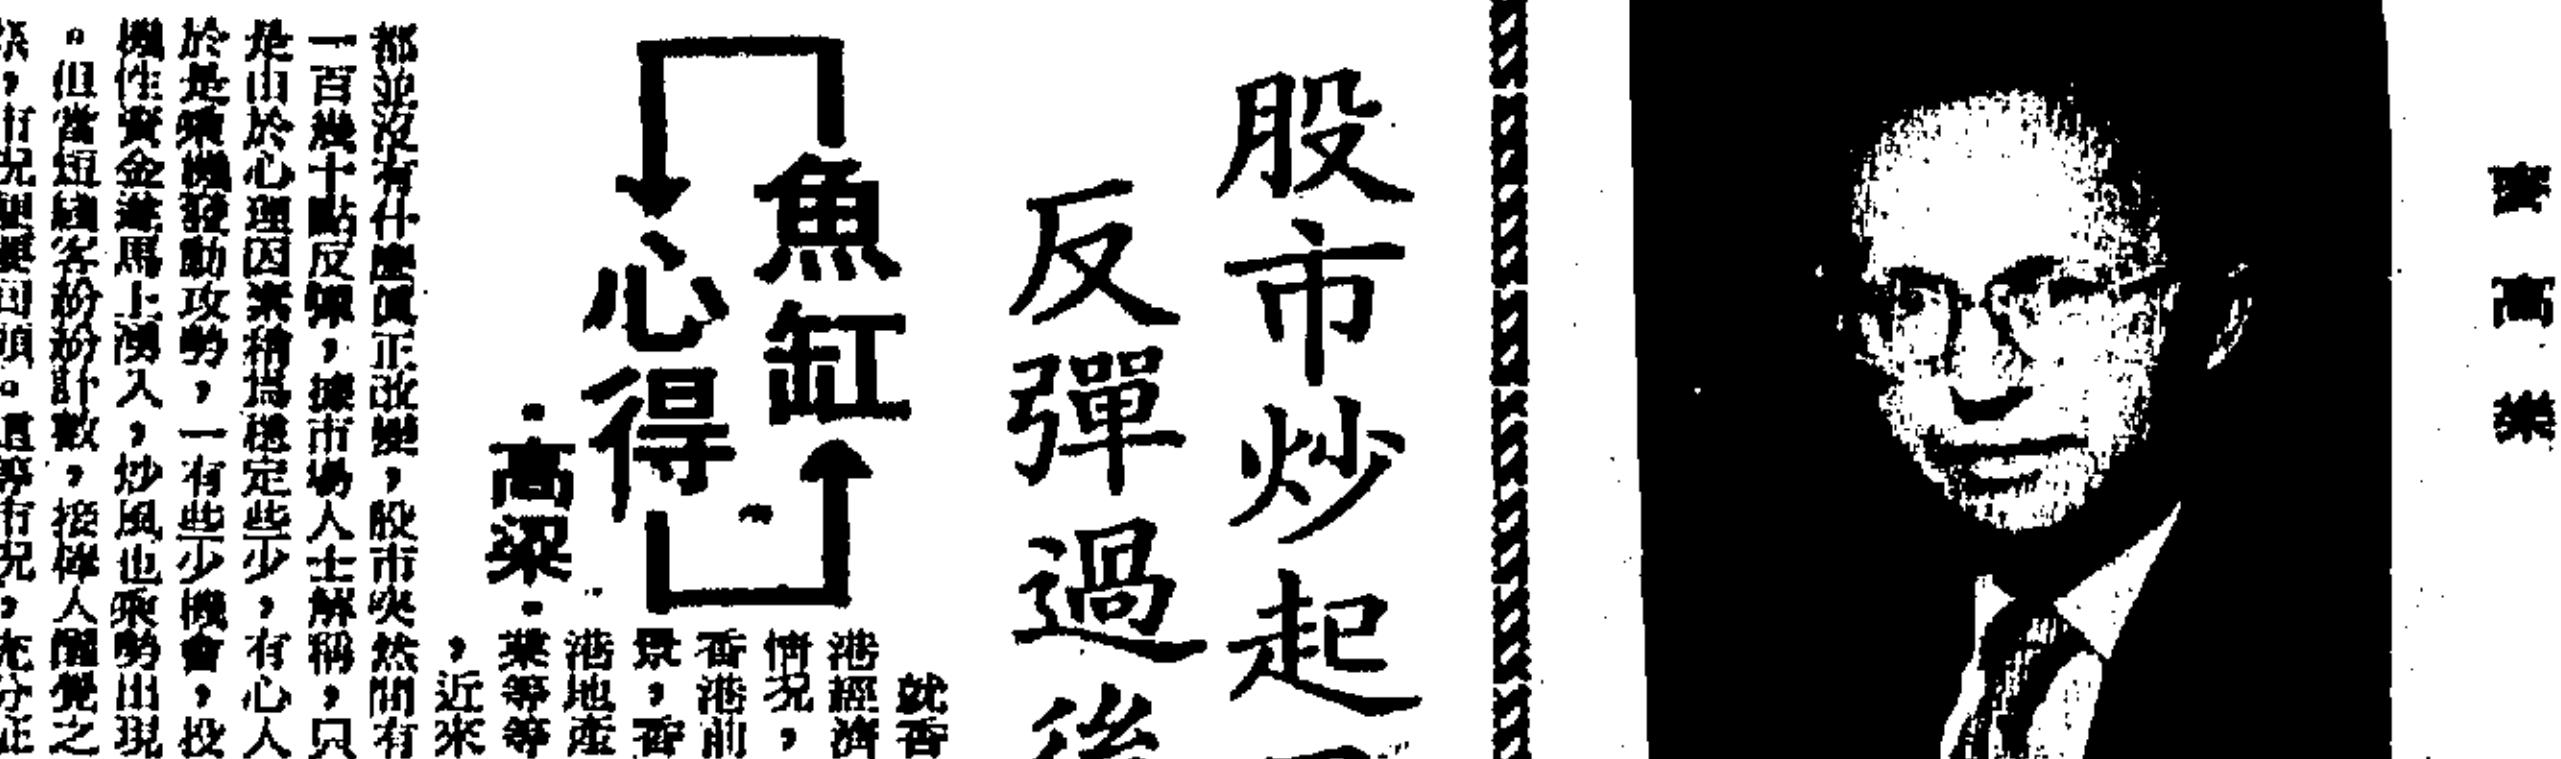 麥高樂
股市炒起
反彈過後
魚缸
心得
·高梁·
就香
港經濟
情況，
香港前
景，香
港地產
業等等
，近來
都並沒有什麼真正改變，股市突然間有
一百幾十點反彈，據市場人士解稱，只
是由於心理因素稍爲穩定些少，有心人
於是乘機發動攻勢，一有些少機會，投
機性資金遂馬上湧入，炒風也乘勢出現
。但當短綫客紛紛計數，接棒人醒覺之
際，市況便要回頭。這等市況，充分証